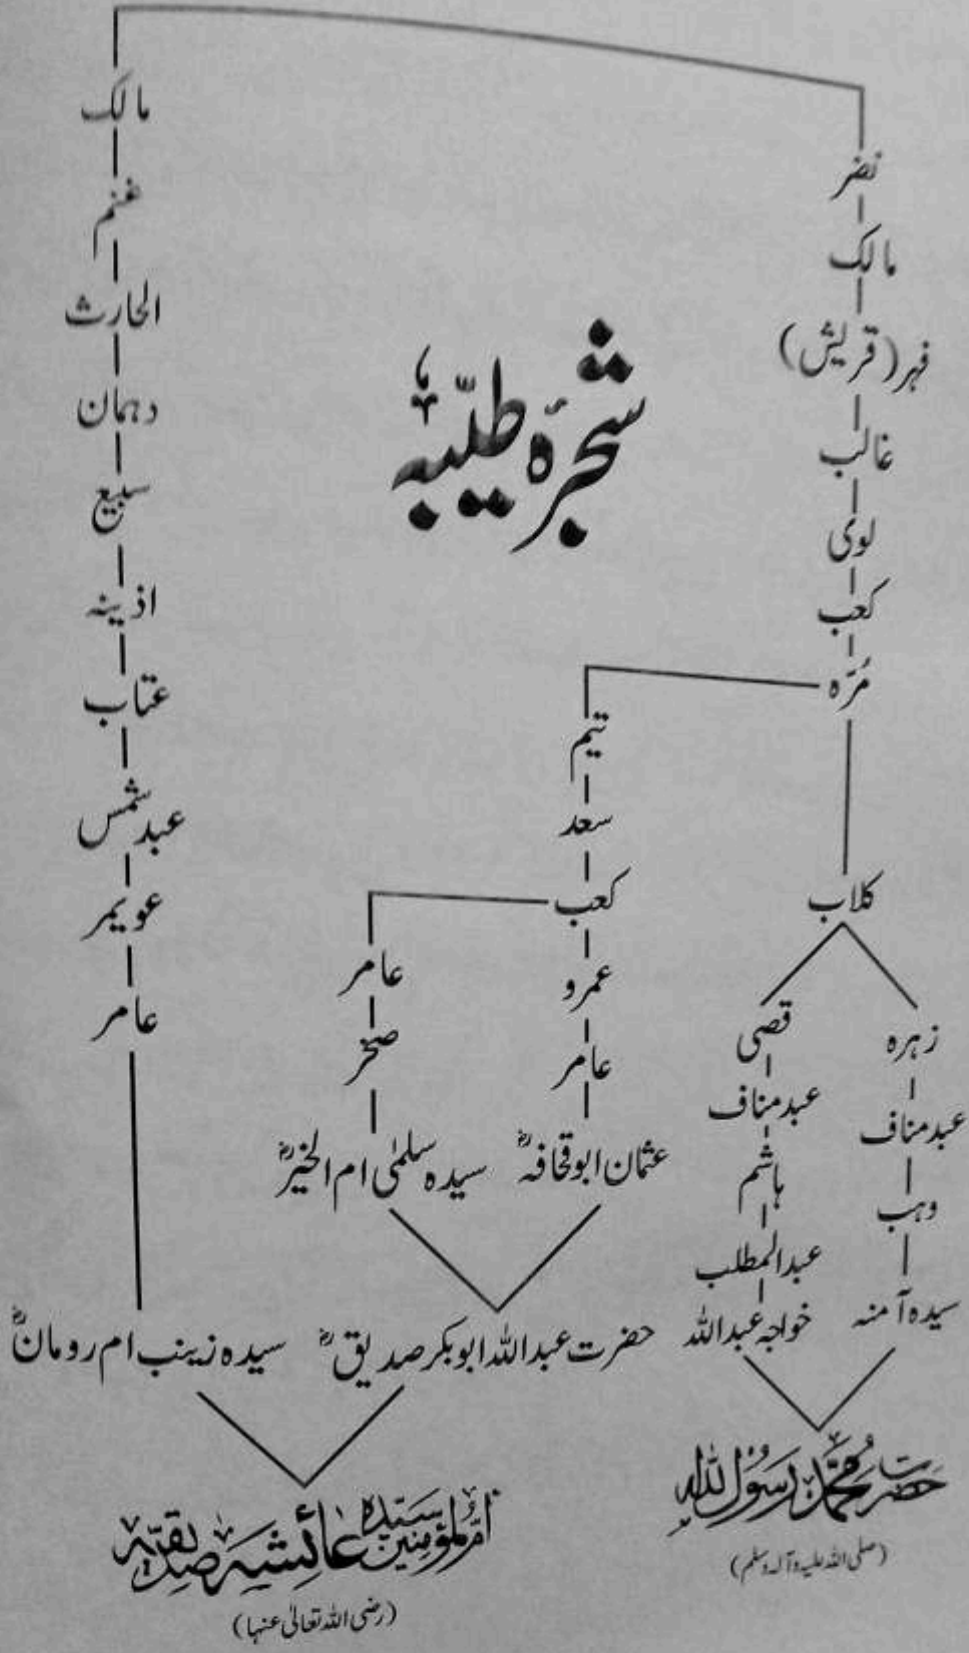 شجرۂ طیّبہ
نضر
مالک
فہر (قریش)
غالب
لوی
کعب
مُرّہ
کلاب
زہرہ
عبد مناف
وہب
سیدہ آمنہ
قصی
عبد مناف
ہاشم
عبدالمطلب
خواجہ عبداللہ
حضرت محمد رسول اللہ
(صلی اللہ علیہ وآلہ وسلم)
تیم
سعد
کعب
عمرو
عامر
عثمان ابو قحافہؓ
عامر
صخر
سیدہ سلمٰی ام الخیرؓ
حضرت عبداللہ ابوبکر صدیقؓ
مالک
غنم
الحارث
دہمان
سبیع
اذینہ
عتاب
عبد شمس
عویمر
عامر
سیدہ زینب ام رومانؓ
ام المؤمنین سیدہ عائشہ صدیقہ
(رضی اللہ تعالیٰ عنہا)